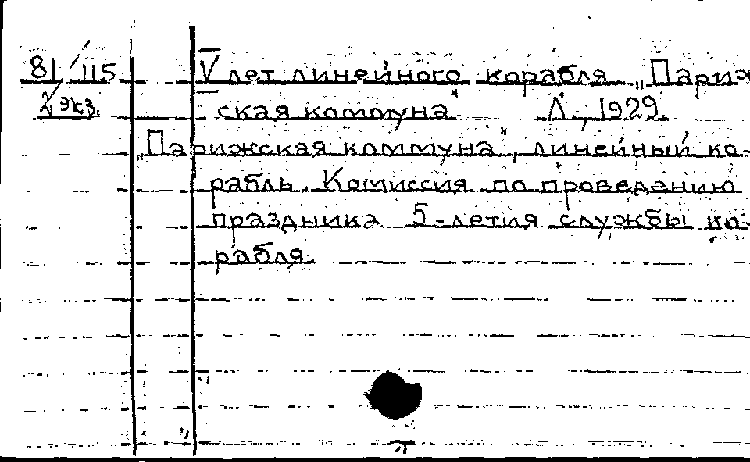 81/115 V лет линейного корабля „Париж
2 экз. ская коммуна" Л., 1929.
„Парижская коммуна", линейный ко-
рабль. Комиссия по проведению
праздника 5-летия службы ко-
рабля.